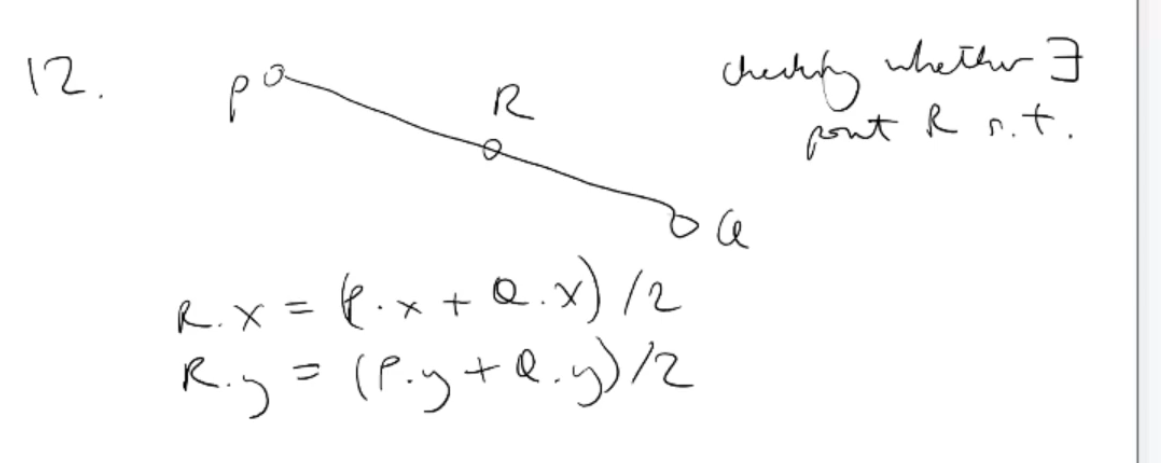 12.
P
R
Q
checking whether ∃
point R s.t.
R.x = (P.x + Q.x)/2
R.y = (P.y + Q.y)/2